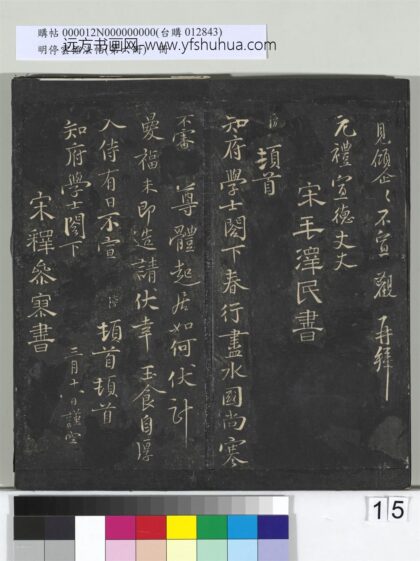 購帖 000012N000000000(台購 012843)
明停雲館法帖(第六冊) 冊
远方书画网 www.yfshuhua.com
見傾企〻不宣 觀 再拜
元禮宣德丈丈
宋毛澤民書
頓首
知府學士閣下春行盡水國尚寒
不審 尊體起居如何伏計
曼福未即造請伏幸 玉食自厚
入侍有日不宣 頓首頓首
知府學士閣下 三月十八日謹空
宋釋參寥書
15